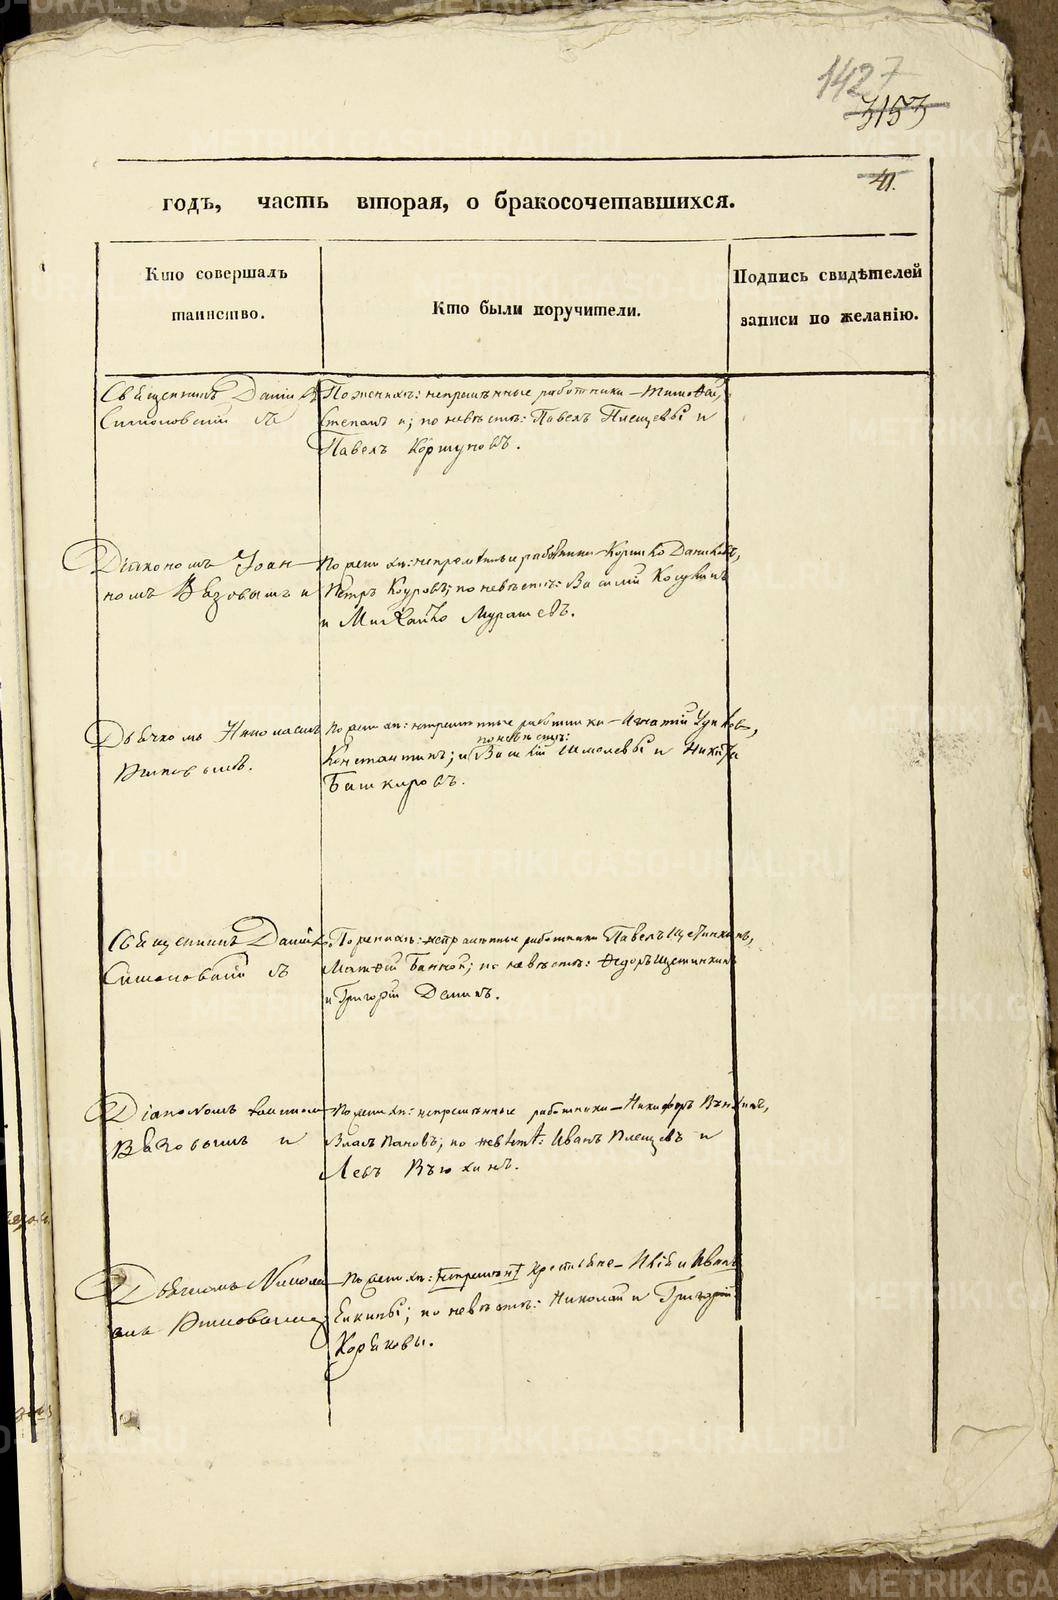 1427
3153
41.
годъ, часть вторая, о бракосочетавшихся.
Кто совершалъ
таинство.
Кто были поручители.
Подпись свидѣтелей
записи по желанію.
Священникъ Даніилъ
Симоновскій съ
По женихѣ: непремѣнные работники – Тимоѳей,
Степанъ и; по невѣстѣ: Павелъ Плещевы и
Павелъ Коршуновъ.
Діакономъ Іоан-
номъ Вязовымъ и
По женихѣ: непремѣнные работники – Даниловъ,
Петръ Кауровъ; по невѣстѣ: Василій
и Михайло Мурашевъ.
Дьячкомъ Николаемъ
По женихѣ: непремѣнные работники – Игнатій
по невѣстѣ:
Константинъ; и Василій Шмолевы и Никита
Башкировъ.
Священникъ Даніилъ
Симоновскій съ
По женихѣ: непремѣнные работники Павелъ Щетинкинъ,
Матѳей Банной; по невѣстѣ: Ѳедоръ Щетинкинъ
и Григорій Деминъ.
Діакономъ Іоанномъ
Вязовымъ и
По женихѣ: непремѣнные работники – Никифоръ Вьюхинъ,
Власъ Пановъ; по невѣстѣ: Иванъ Плещевъ и
Левъ Вьюхинъ.
Дьячкомъ Никола-
емъ
По женихѣ: крестьяне – и Иванъ
Екимовы; по невѣстѣ: Николай и Григорій
Коряковы.
METRIKI.GASO-URAL.RU